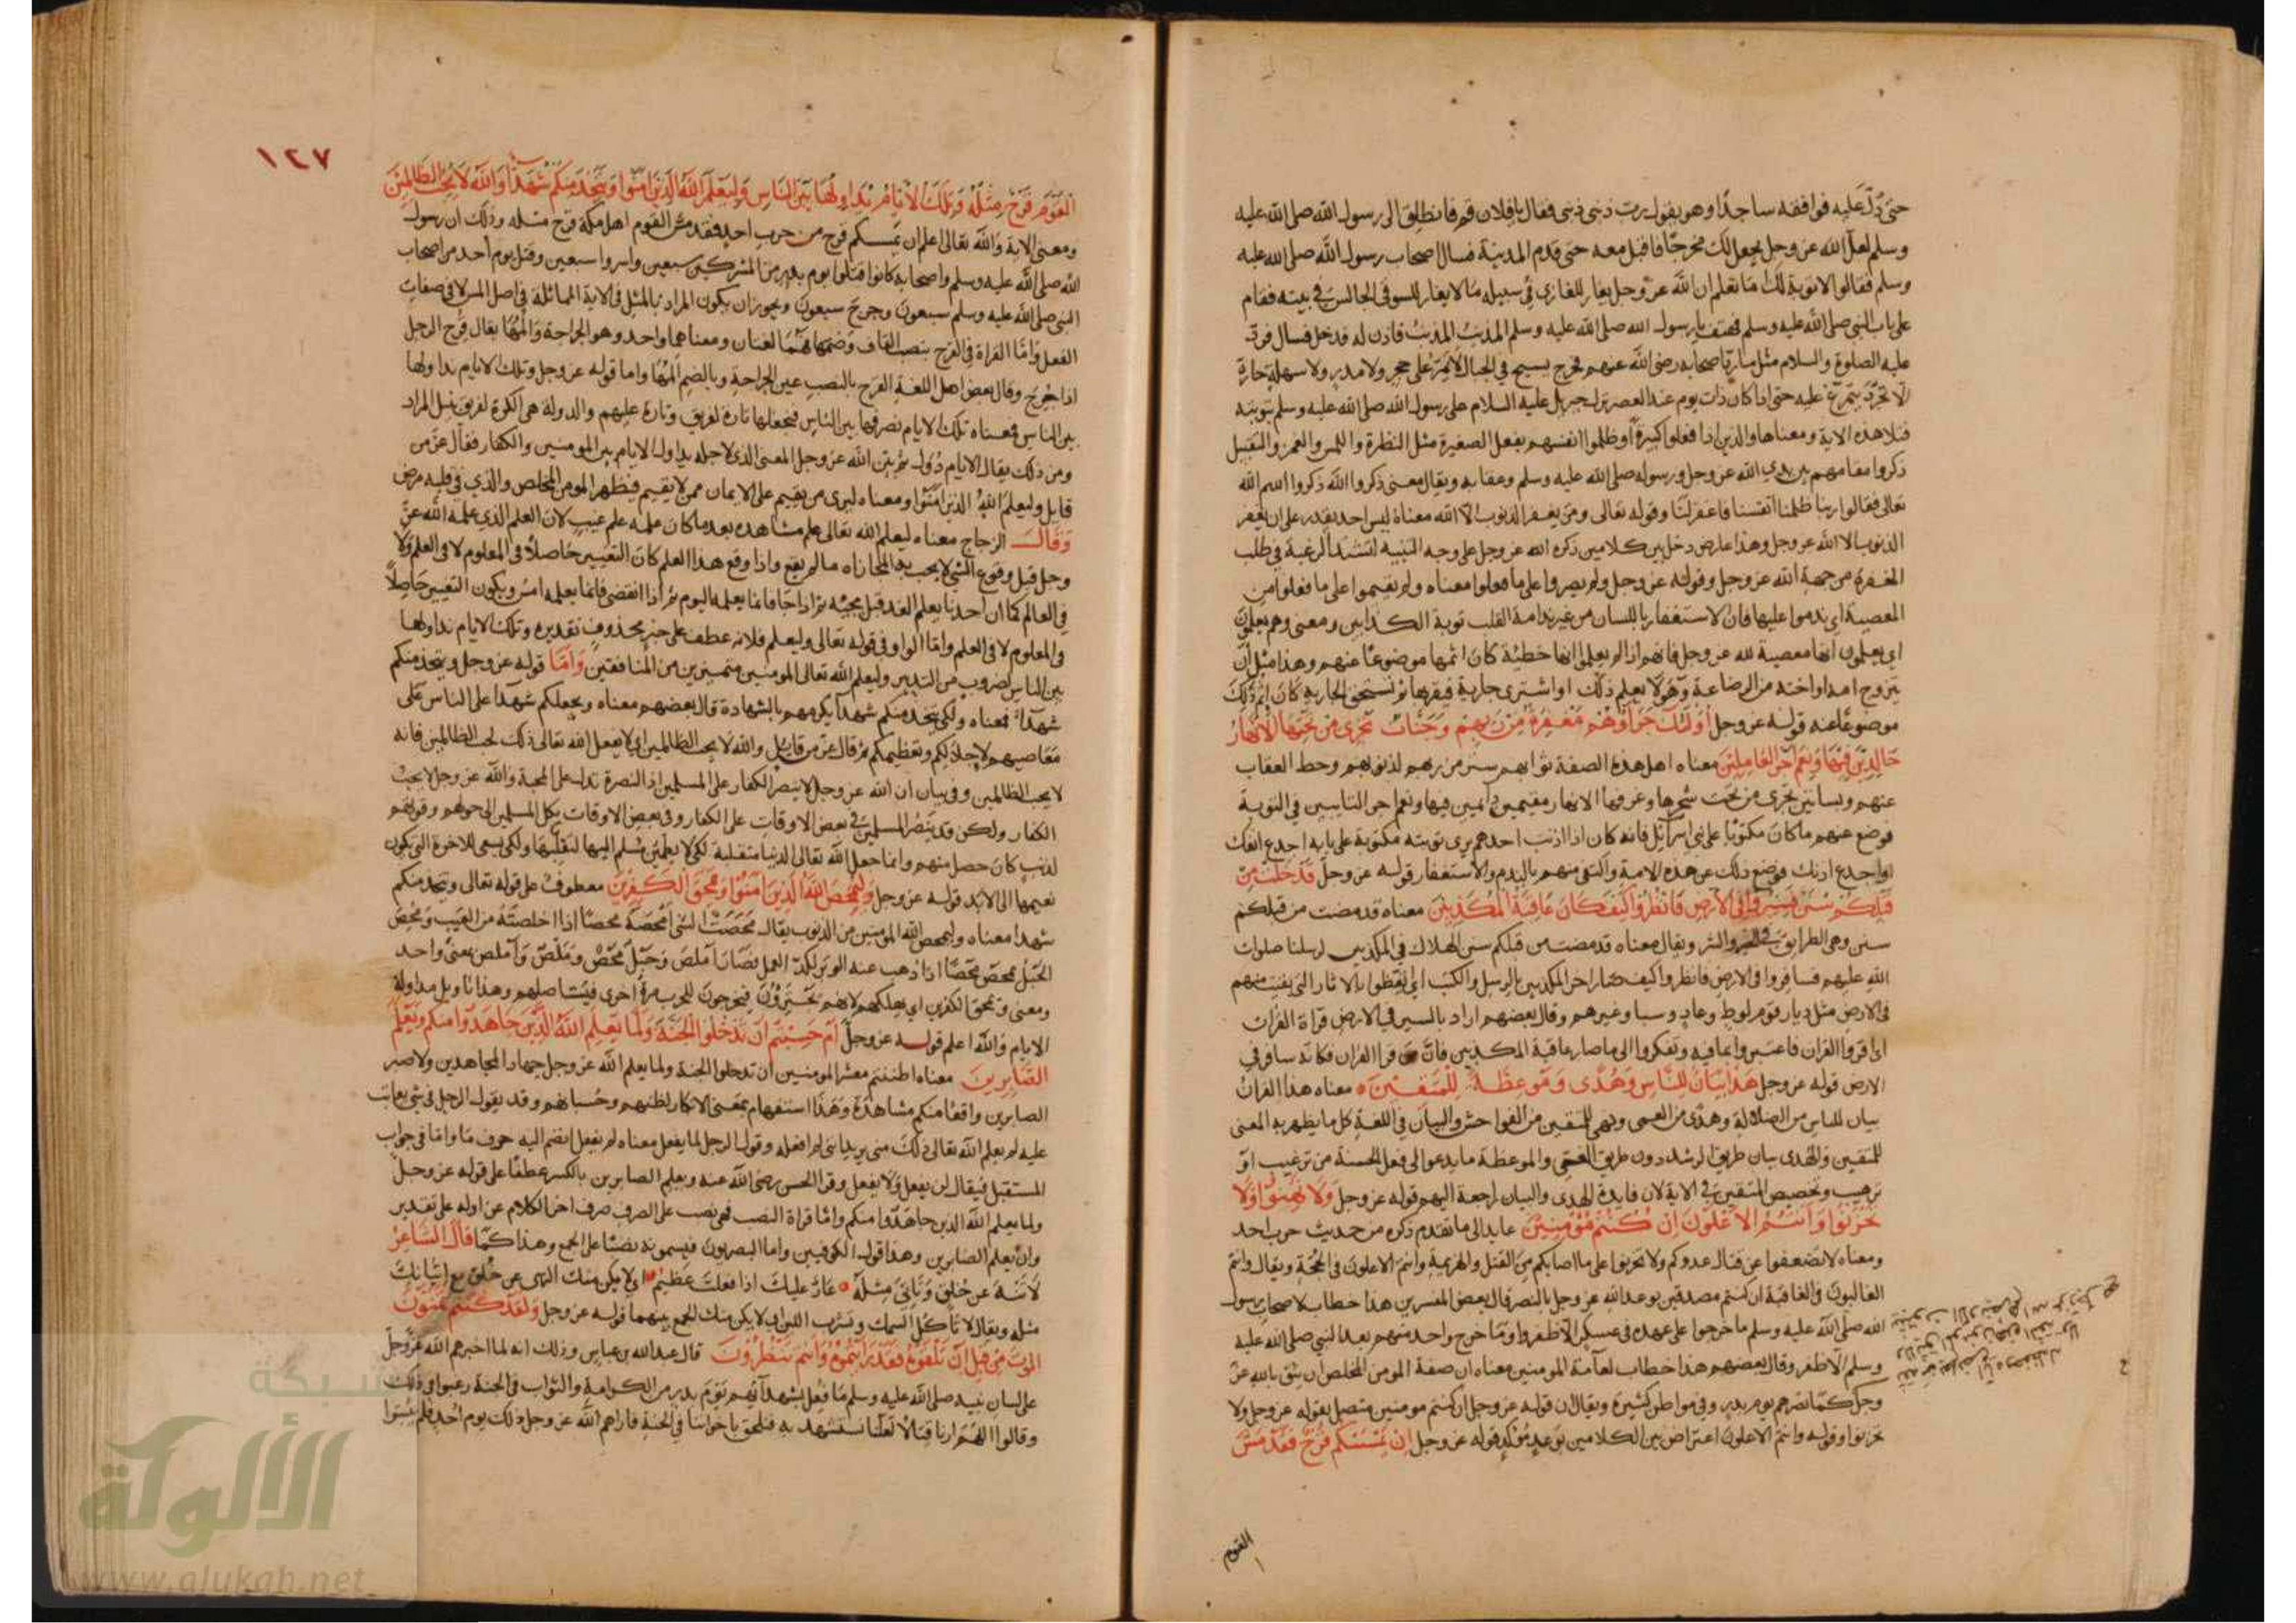 حتى دُلّ عليه فوافقه ساجدًا وهو يقول يرب ذنبي ذنبي فقال يا فلان قم فانطلق الى رسول الله صلى الله عليه
وسلم لعل الله عز وجل يجعل لك مخرجًا فاقبل معه حتى قدم المدينة فسال اصحاب رسول الله صلى الله عليه
وسلم فقالوا لا توبة لك اما تعلم ان الله عز وجل يغار للغازي في سبيله ما لا يغار للسوقي الجالس في بيته فقام
على باب النبي صلى الله عليه وسلم فهتف يا رسول الله صلى الله عليه وسلم المذنب المذنب فاذن له فدخل فسال فرد
عليه الصلوة والسلام مثل ما رد اصحابه رضي الله عنهم فخرج يسيح في الجبال لا يمر على حجر ولا مدر ولا سهلة حارة
الا تجرد يتمرغ عليه حتى اذا كان ذات يوم عند العصر نزل جبريل عليه السلام على رسول الله صلى الله عليه وسلم بتوبته
فتلا هذه الاية ومعناها والذين اذا فعلوا كبيرة او ظلموا انفسهم بفعل الصغيرة مثل النظرة واللمس والغمز والتقبيل
ذكروا مقامهم بين يدي الله عز وجل ورسوله صلى الله عليه وسلم وعقابه ويقال معنى ذكروا الله ذكروا اسم الله
تعالى فقالوا ربنا ظلمنا انفسنا فاغفر لنا وقوله تعالى ومن يغفر الذنوب الا الله معناه ليس احد يقدر على ان يغفر
الذنوب الا الله عز وجل وهذا عارض دخل بين كلامين ذكره الله عز وجل على وجه التنبيه لتشتد الرغبة في طلب
المغفرة من جهة الله عز وجل وقوله عز وجل ولم يصروا على ما فعلوا معناه ولم يقيموا على ما فعلوا من
المعصية اي ندموا عليها فان الاستغفار باللسان من غير ندامة القلب توبة الكذابين ومعنى وهم يعلمون
اي يعلمون انها معصية لله عز وجل فانهم اذا لم يعلموا انها خطيئة كان اثمها موضوعًا عنهم وهذا مثل ان
يتزوج امه او اخته من الرضاعة وهو لا يعلم ذلك او اشترى جارية فيقربها ثم تستحق الجارية كان اثم ذلك
موضوعًا عنه قوله عز وجل اولئك جزاؤهم مغفرة من ربهم وجنات تجري من تحتها الانهار
خالدين فيها ونعم اجر العاملين معناه اهل هذه الصفة ثوابهم ستر من ربهم لذنوبهم وحط العقاب
عنهم وبساتين تجري من تحت شجرها وغرفها الانهار مقيمين دائمين فيها ونعم اجر التايبين في التوبة
فوضع عنهم ما كان مكتوبًا على بني اسرآئيل فانه كان اذا اذنب احدهم يرى توبته مكتوبة على بابه اجدع انفك
او اجدع اذنك فوضع ذلك عن هذه الامة واكتفى منهم بالندم والاستغفار قوله عز وجل قد خلت من
قبلكم سنن فسيروا في الارض فانظروا كيف كان عاقبة المكذبين معناه قد مضت من قبلكم
سنن وهي الطرايق في الخير والشر ويقال معناه قد مضت من قبلكم سنن الهلاك في المكذبين لرسلنا صلوات
الله عليهم فسافروا في الارض فانظروا كيف صار اخر المكذبين بالرسل والكتب اي اتعظوا بالاثار التي بقيت منهم
في الارض مثل ديار قوم لوط وعاد وسبا وغيرهم وقال بعضهم اراد بالسير في الارض قراة القران
اي اقروا القران فاعتبروا بما فيه وتفكروا الى ما صار عاقبة المكذبين فان من قرا القران فكانه سافر في
الارض قوله عز وجل هذا بيان للناس وهدى وموعظة للمتقين معناه هذا القران
بيان للناس من الضلالة وهدى من العمى ونهي للمتقين من الفواحش والبيان في اللغة كل ما يظهر به المعنى
للمتقين والهدى بيان طريق الرشد دون طريق العمى والموعظة ما يدعوا الى فعل الحسنة من ترغيب او
ترهيب وتخصيص المتقين في الاية لان فايدة الهدى والبيان راجعة اليهم قوله عز وجل ولا تهنوا ولا
تحزنوا وانتم الاعلون ان كنتم مؤمنين عايد الى ما تقدم ذكره من حديث حرب احد
ومعناه لا تضعفوا عن قتال عدوكم ولا تحزنوا على ما اصابكم من القتل والهزيمة وانتم الاعلون في الحجة ويقال وانتم
الغالبون في العاقبة ان كنتم مصدقين بوعد الله عز وجل بالنصر قال بعض المفسرين هذا خطاب لاصحاب رسول
الله صلى الله عليه وسلم ما خرجوا على عهده في عسكر الا ظفروا وما خرج واحد منهم بعد النبي صلى الله عليه
وسلم الا ظفر وقال بعضهم هذا خطاب لعامة المومنين معناه ان صفة المومن المخلص ان يثق بالله عز
وجل كما نصرهم يوم بدر وفي مواطن كثيرة ويقال ان قوله عز وجل ان كنتم مومنين متصل بقوله عز وجل ولا
تحزنوا وقوله وانتم الاعلون اعتراض بين الكلامين بوعد مؤكد قوله عز وجل ان يمسسكم قرح فقد مس
القوم
١٢٧
القوم قرح مثله وتلك الايام نداولها بين الناس وليعلم الله الذين امنوا ويتخذ منكم شهدآ والله لا يحب الظالمين
ومعنى الاية والله تعالى اعلم ان يمسسكم قرح من حرب احد فقد مس القوم اهل مكة قرح مثله وذلك ان رسول
الله صلى الله عليه وسلم واصحابه كانوا قتلوا يوم بدر من المشركين سبعين واسروا سبعين وقتل يوم أحد من اصحاب
النبي صلى الله عليه وسلم سبعون وجرح سبعون ويجوز ان يكون المراد بالمثل في الاية المماثلة في اصل المس لا في صفات
الفعل واما القراة في القرح بنصب القاف وضمها فهما لغتان ومعناهما واحد وهو الجراحة والمها يقال قرح الرجل
اذا جرح وقال بعض اهل اللغة القرح بالنصب عين الجراحة وبالضم المها واما قوله عز وجل وتلك الايام نداولها
بين الناس فمعناه تلك الايام نصرفها بين الناس فنجعلها تارة لفريق وتارة عليهم والدولة هي الكرة لفريق بنيل المراد
ومن ذلك يقال الايام دُول ثم بين الله عز وجل المعنى الذي لاجله يداول الايام بين المومنين والكفار فقال عز من
قايل وليعلم الله الذين امنوا ومعناه ليرى من يقيم على الايمان ممن لا يقيم فيظهر المومن المخلص والذي في قلبه مرض
وقال الزجاج معناه ليعلم الله تعالى علم مشاهدة بعد ما كان علمه علم غيب لان العلم الذي علمه الله عز
وجل قبل وقوع الشي لا يجب به المجازاه ما لم يقع واذا وقع هذا العلم كان التغيير حاصلًا في المعلوم لا في العلم ولا
في العالم كما ان احدنا يعلم الغد قبل مجيئه ثم اذا جا فانما يعلمه اليوم ثم اذا انقضى فانما يعلمه امس ويكون التغيير حاصلًا
في المعلوم لا في العلم واما الواو في قوله تعالى وليعلم فلانه عطف على خبر محذوف تقديره وتلك الايام نداولها
بين الناس لضروب من التدبير وليعلم الله تعالى المومنين متميزين من المنافقين واما قوله عز وجل ويتخذ منكم
شهدآ فمعناه ولكي يتخذ منكم شهدآ يكرمهم بالشهادة قال بعضهم معناه ويجعلكم شهدآ على الناس على
معاصيهم لاجلالكم وتعظيمكم ثم قال عز من قايل والله لا يحب الظالمين اي لا يفعل الله تعالى ذلك لحب الظالمين فانه
لا يحب الظالمين وفي بيان ان الله عز وجل لا ينصر الكفار على المسلمين اذ النصرة تدل على المحبة والله عز وجل لا يحب
الكفار ولكن قد ينصر المسلمين في بعض الاوقات على الكفار وفي بعض الاوقات يكل المسلمين الى حولهم وقوتهم
لذنب كان حصل منهم وانما جعل الله تعالى الدنيا متقلبة لكي لا يطمئن مسلم اليها لتقلبها ولكي يسعى للاخرة التي يكون
نعيمها الى الابد قوله عز وجل وليمحص الله الذين امنوا ويمحق الكافرين معطوف على قوله تعالى ويتخذ منكم
شهدا معناه وليمحص الله المومنين من الذنوب يقال محصت الشي امحصه محصا اذا اخلصته من العيب ومحص
الحبل يمحص محصًا اذا ذهب عنه الوبر لكد العمل فصار املص وحبل محص وملص واملص بمعنى واحد
ومعنى ويمحق الكفرين اي يهلكهم لانهم يجترؤن فيخرجون للحرب مرة اخرى فيستاصلهم وهذا تاويل مداولة
الايام والله اعلم قوله عز وجل ام حسبتم ان تدخلوا الجنة ولما يعلم الله الذين جاهدوا منكم ويعلم
الصابرين معناه اظننتم معشر المومنين ان تدخلوا الجنة ولما يعلم الله عز وجل جهاد المجاهدين ولا صبر
الصابرين واقعًا منكم مشاهدة وهذا استفهام بمعنى الانكار لظنهم وحسبانهم وقد يقول الرجل في شي يعاتب
عليه لم يعلم الله تعالى ذلك مني يريد اني لم افعله وقول الرجل لما يفعل معناه لم يفعل انضم اليه حرف ما واما في جواب
المستقبل فيقال لن يفعل ولا يفعل وقرا الحسن رضي الله عنه ويعلم الصابرين بالكسر عطفًا على قوله عز وجل
ولما يعلم الله الذين جاهدوا منكم واما قراة النصب فهي نصب على الصرف صرف اخر الكلام عن اوله على تقدير
وان يعلم الصابرين وهذا قول الكوفيين واما البصريون فيسمونه نصبًا على الجمع وهذا كما قال الشاعر
لا تنه عن خلق وتاتي مثله عار عليك اذا فعلت عظيم اي لا يكن منك النهي عن خلق مع اتيانك
مثله ويقال لا تاكل السمك وتشرب اللبن اي لا يكن منك الجمع بينهما قوله عز وجل ولقد كنتم تمنون
الموت من قبل ان تلقوه فقد رايتموه وانتم تنظرون قال عبدالله بن عباس وذلك انه لما اخبرهم الله عز وجل
على لسان نبيه صلى الله عليه وسلم ما فعل بشهدآئهم يوم بدر من الكرامة والثواب في الجنة رغبوا في ذلك
وقالوا اللهم ارنا قتالًا لعلنا نستشهد به فنلحق باخواننا في الجنة فاراهم الله عز وجل ذلك يوم احد فلم يثبتوا
شبكة
الألوكة
www.alukah.net